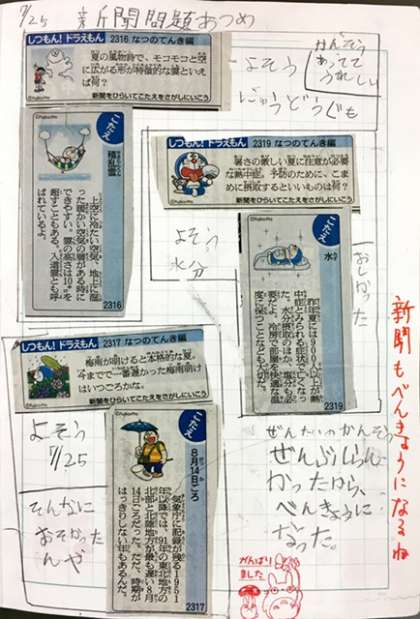 7/25 新聞問題あつめ
しつもん!ドラえもん 2316 なつのてんき編
夏の風物詩で、モコモコと空
に広がる形が特徴的な雲といえ
ば何?
新聞をひらいてこたえをさがしにいこう
よそう
にゅうどうぐも
かんそう
あってて
うれしい
こたえ
積乱雲
上空に冷たい空気、地上に湿
った暖かい空気の層がある時に
できやすい。雲の高さは10㌔を
超すこともある。入道雲とも呼
ばれているよ。
2316
しつもん!ドラえもん 2319 なつのてんき編
暑さの厳しい夏に注意が必要
な熱中症。予防のために、こま
めに摂取するといいものは何?
新聞をひらいてこたえをさがしにいこう
よそう
水分
こたえ
水
昨年夏には900人以上が熱
中症とみられる症状で亡くなっ
た。水分摂取のほか、塩分も必
要だよ。冷房で部屋を快適な温
度に保つことなども大切だ。
2319
おしかった
しつもん!ドラえもん 2317 なつのてんき編
梅雨が明けると本格的な夏。
今までで一番遅かった梅雨明け
はいつごろかな。
新聞をひらいてこたえをさがしにいこう
よそう
7/25
こたえ
8月14日ごろ
気象庁に記録が残る1951
年以降では、91年の東北地方の
北部と北陸地方が最も遅い8月
14日ごろだった。ただ、時期が
はっきりしない年もあるんだ。
2317
そんなに
おそかった
んや
ぜんたいのかんそう
ぜんぶしらん
かったから、
べんきょうに
なった。
新聞もべんきょうになるね
がんばり
ました